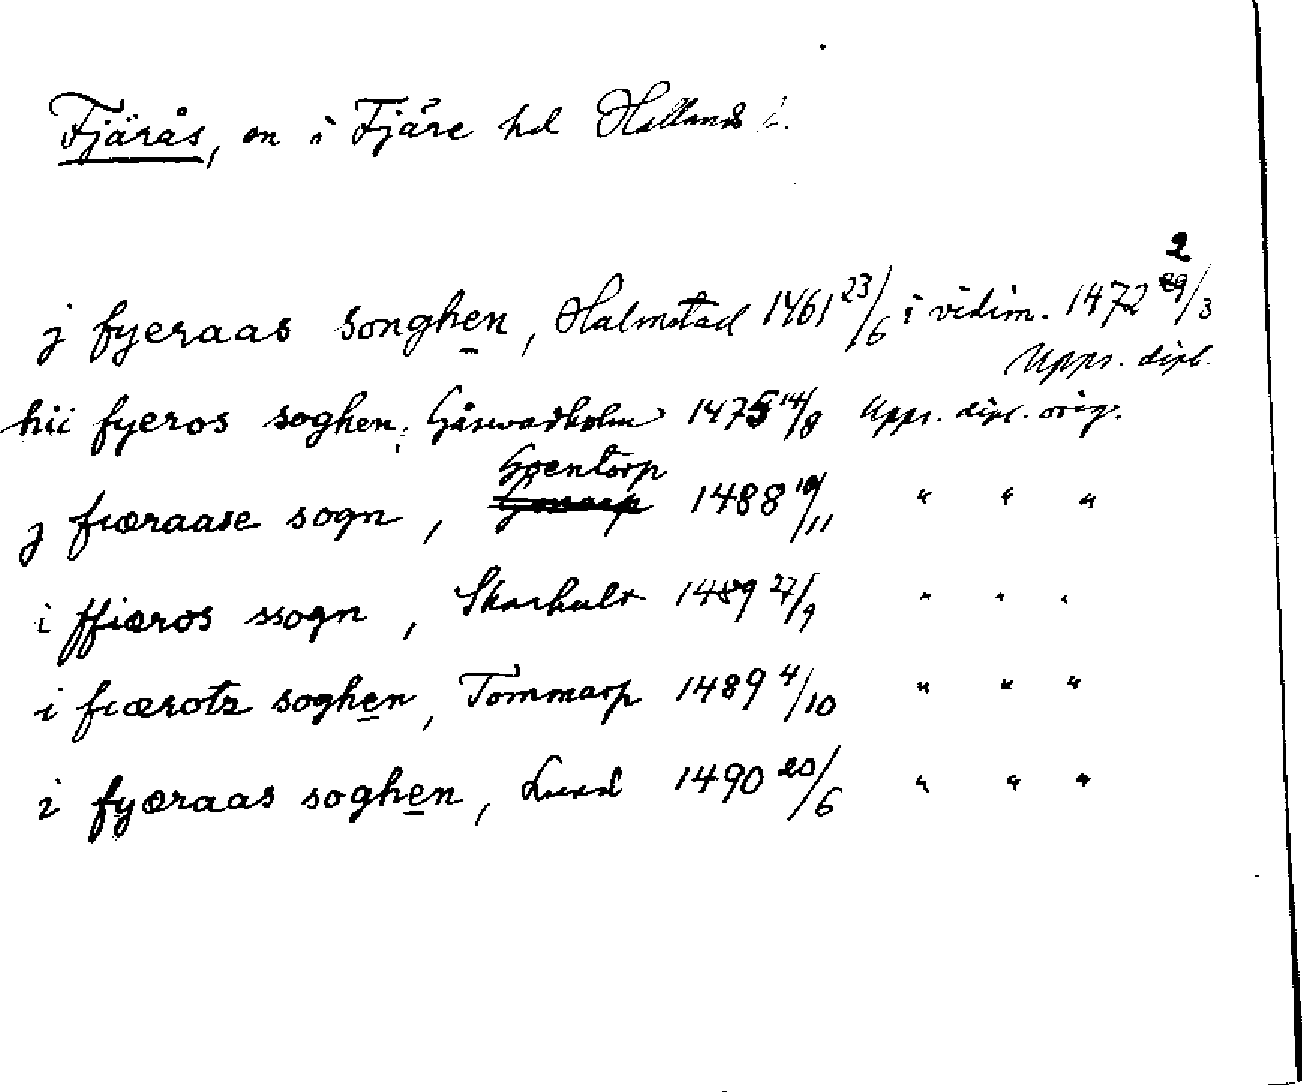 Fjärås, sn i Fjäre hd Hallands l.
j fyeraas songhen, Halmstad 1461 23/6 i vidim. 1472 2/3
Upps. dipl.
hii fyeros soghen, Gåswadholm 1475 14/8 Upps. dipl. orig.
Goentorp
j fiæraase sogn, 1488 10/11 " " "
i ffiæros ssogn, Skarhult 1489 27/9 " " "
i fiærotz soghen, Tommarp 1489 4/10 " " "
i fyæraas soghen, Lund 1490 20/6 " " "